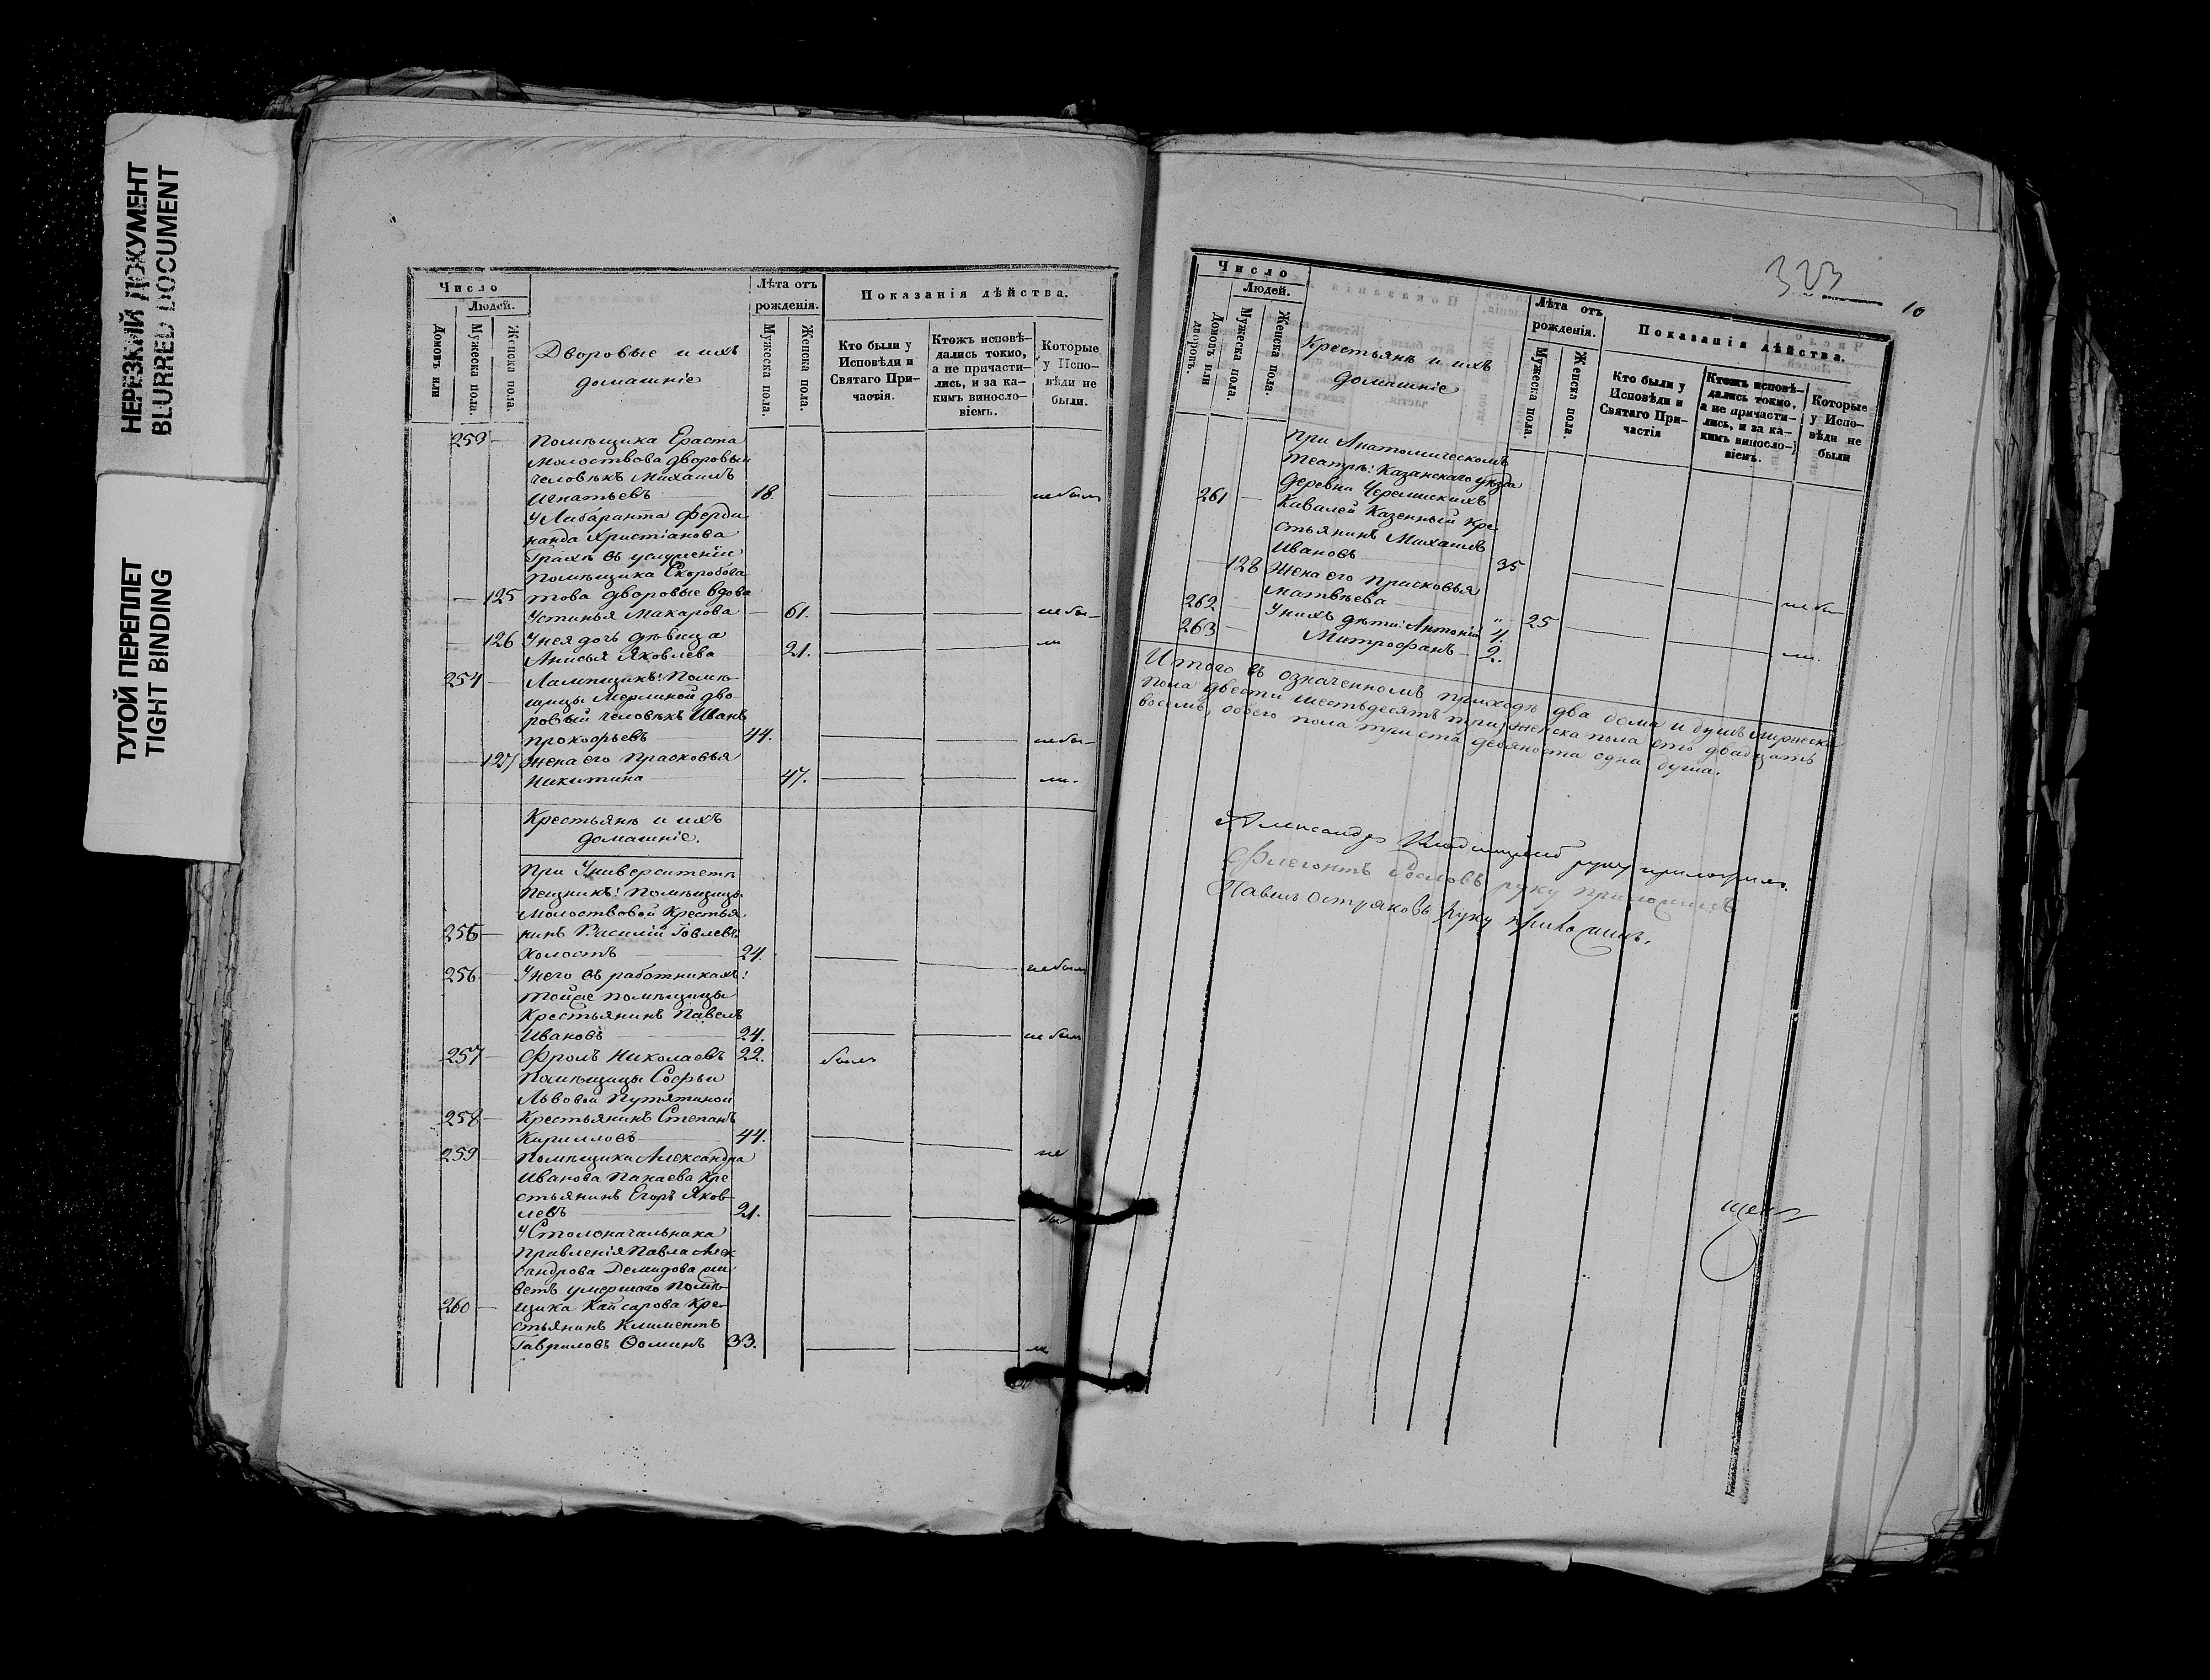 НЕРЕЗКИЙ ДОКУМЕНТ
BLURRED DOCUMENT
ТУГОЙ ПЕРЕПЛЕТ
TIGHT BINDING
Число
Людей.
Домовъ или
Мужеска пола.
Женска пола.
Дворовые и ихъ
домашніе
Лѣта отъ
рожденія.
Мужеска пола.
Женска пола.
Показанія дѣйства.
Кто были у
Исповѣди и
Святаго При-
частія.
Ктожъ исповѣ-
дались токмо,
а не причасти-
лись, и за ка-
кимъ виносло-
віемъ.
Которые
у Испо-
вѣди не
были.
253 — Помѣщика Ераста
Молоствова дворовый
человѣкъ Михаилъ
Игнатьевъ 18. не былъ
У Лабаранта Ферди
нанда Христіанова
въ услуженіи
помѣщика Скоробога
— 125 това дворовые вдова
Устинья Макарова — 61. не бы—
— 126 У нея дочь дѣвица
Анисья Яковлева 21.
254 — Лампщикъ: Помѣ
щицы Мерлиной дво
ровый человѣкъ Иванъ
Прокофьевъ 44. не бы—
— 127 Жена его Прасковья
Никитина 47.
Крестьянѣ и ихъ
домашніе.
При Университетѣ
Пещникъ: Помѣщицы
Молоствовой Крестья
255 — нинъ Василій Іовлевъ
Холостъ 24. не былъ
256 — У него въ работникахъ:
тойже помѣщицы
Крестьянинъ Павелъ
Ивановъ 24. не былъ
257 — Фролъ Николаевъ 22. былъ
Помѣщицы Софьи
Львовой Путятиной
258 — Крестьянинъ Степанъ
Кирилловъ 44. не
259 — Помѣщика Александра
Иванова Панаева Кре
стьянинъ Егоръ Яков
левъ 21. бы
У Столоначальника
Правленія Павла Алек
сандрова Демидова жи
ветъ умершаго Помѣ
260 — щика Кайсарова Кре
стьянинъ Климентъ
Гавриловъ Ѳоминъ 33.
323
10
Число
Людей.
Домовъ или
дворовъ.
Мужеска пола.
Женска пола.
Крестьянѣ и ихъ
домашніе
Лѣта отъ
рожденія.
Мужеска пола.
Женска пола.
Показанія дѣйства.
Кто были у
Исповѣди и
Святаго При-
частія
Ктожъ исповѣ-
дались токмо,
а не причасти-
лись, и за ка-
кимъ виносло-
віемъ.
Которые
у Испо-
вѣди не
были
При Анатомическомъ
Театрѣ: Казанскаго уѣзда
деревни Черемискихъ
261 — Кавалей Казенный Кре
стьянинъ Михаилъ
Ивановъ 35 не бы—
— 128 Жена его Прасковья
Матвѣева „ 25
262 — У нихъ дѣти: Антоній 4.
263 — Митрофанъ 2.
Итого въ означенномъ приходѣ два дома и душъ мужеска
пола двести шестьдесятъ три, женска пола сто двадцать
восемь, обоего пола триста девяноста одна душа.
Александръ руку приложилъ.
Флегонтъ руку приложилъ
Павелъ Остряковъ руку приложилъ.